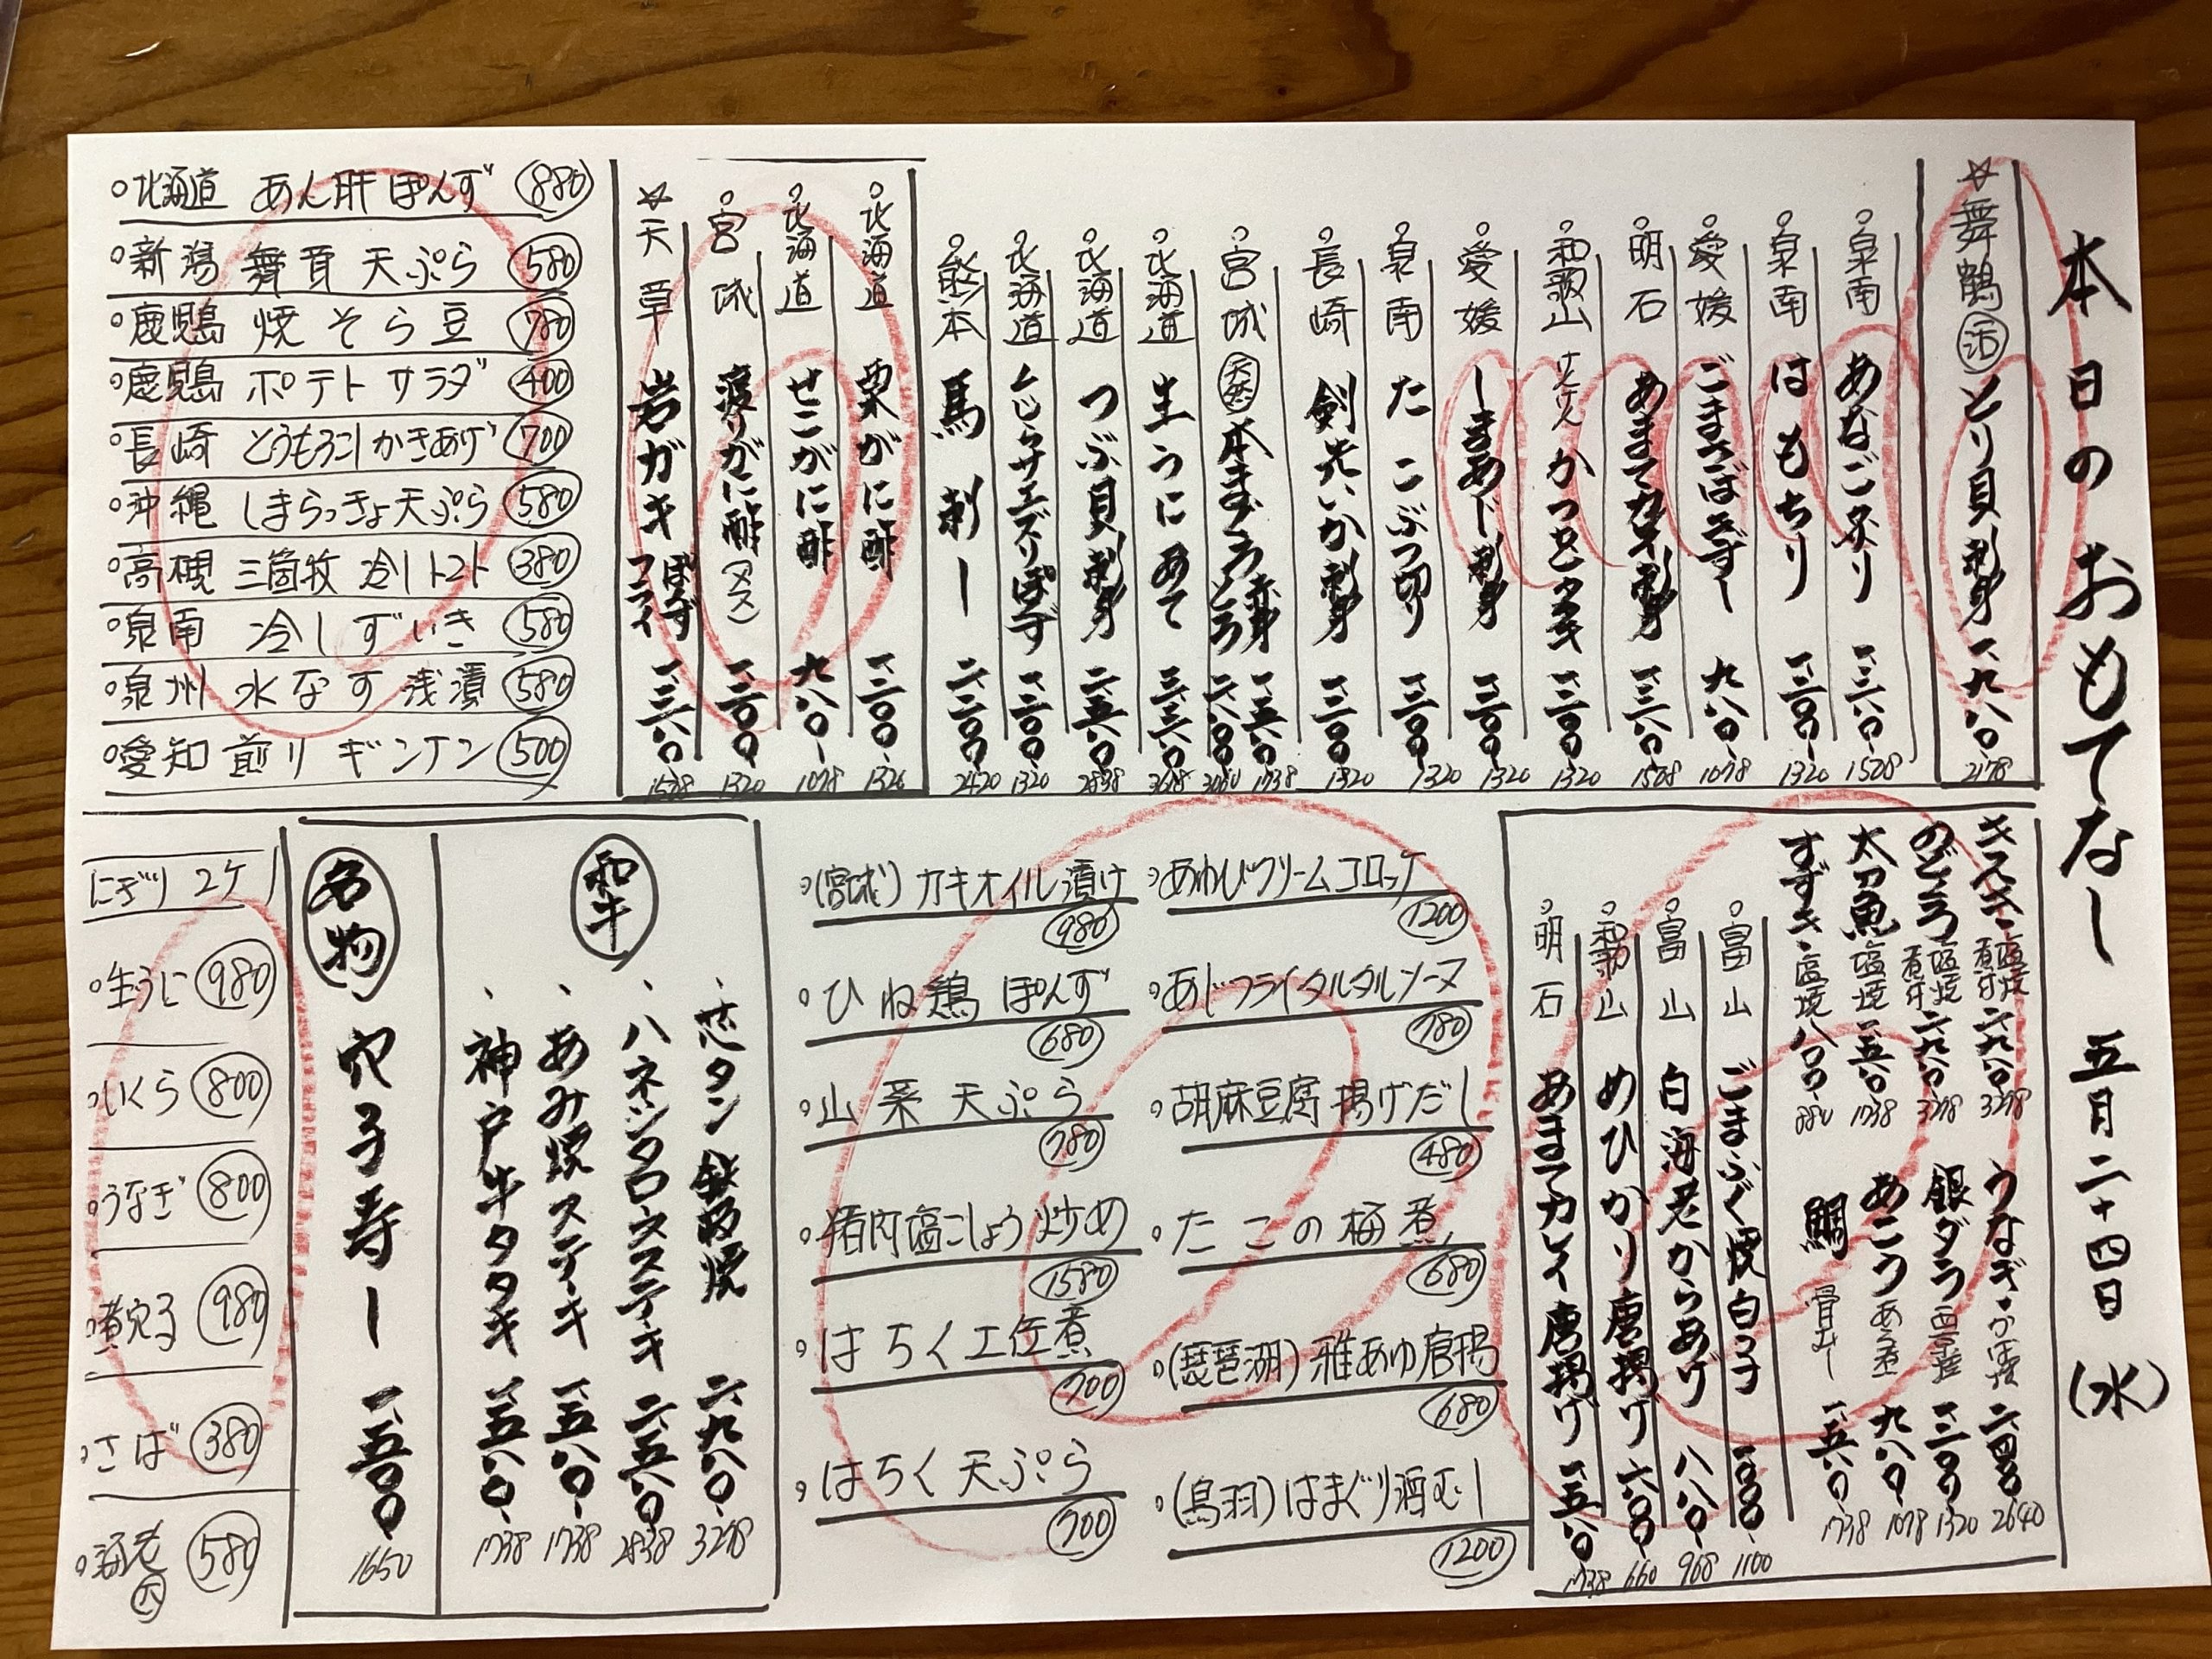 本日のおもてなし 五月二十四日(水)
☆舞鶴 活 とり貝刺身 一、九八〇 2178
泉南 あなご炙り 一、三六〇 1508
泉南 はもちり 一、二〇〇 1320
愛媛 ごまさばきずし 九八〇 1078
明石 あまてカレイ刺身 一、三六〇 1508
和歌山 けんけんかつおタタキ 一、二〇〇 1320
愛媛 しまあじ刺身 一、二〇〇 1320
泉南 たこぶつ切り 一、二〇〇 1320
長崎 剣先いか刺身 一、二〇〇 1320
宮城 天然 本まぐろ 赤身 一、五八〇 1738
とろ 二、八〇〇 3080
北海道 生うにあて 三、三六〇
北海道 つぶ貝刺身 二、五八〇 2838
北海道 くじらサエズリぽんず 一、二〇〇 1320
熊本 馬刺し 二、二〇〇 2420
北海道 栗がに酢 一、二〇〇 1320
北海道 せこがに酢 九八〇 1078
宮城 渡りがに酢(メス) 一、二〇〇 1320
☆天草 岩ガキ ぽんず フライ 一、三六〇 1508
北海道 あん肝ぽんず 880
新潟 舞茸天ぷら 580
鹿児島 焼そら豆 780
鹿児島 ポテトサラダ 400
長崎 とうもろこしかきあげ 700
沖縄 しまらっきょ天ぷら 580
高槻 三箇牧 冷しトマト 380
泉南 冷しずいき 580
泉州 水なす浅漬 580
愛知 煎りギンナン 500
キスキ 塩焼 煮付 二、九八〇 3278
のどぐろ 塩焼 煮付 二、九八〇 3278
太刀魚 塩焼 一、五八〇 1738
すずき 塩焼 八〇〇 880
うなぎ 二、四〇〇 2640
銀ダラ 西京焼 一、二〇〇 1320
あこう あら煮 九八〇 1078
鯛 骨蒸し 一、五八〇 1738
富山 ごまふぐ焼白子 一、〇〇〇 1100
富山 白海老からあげ 八八〇 968
和歌山 めひかり唐揚げ 六〇〇 660
明石 あまてカレイ唐揚げ 一、五八〇 1738
あわびクリームコロッケ 1200
あじフライタルタルソース 780
胡麻豆腐揚げだし 480
たこの梅煮 680
(琵琶湖)稚あゆ唐揚 680
(鳥羽)はまぐり酒むし 1200
(宮城)カキオイル漬け 980
ひね鶏ぽんず 680
山菜天ぷら 780
猪肉塩こしょう炒め 1580
はちく土佐煮 700
はちく天ぷら 700
和牛
芯タン鉄板焼 二、九八〇 3278
ハネシタロースステーキ 二、五八〇 2838
あみ焼ステーキ 一、五八〇 1738
神戸牛タタキ 一、五八〇 1738
名物 穴子寿し 一、五〇〇 1650
にぎり 2ケ
生うに 980
いくら 800
うなぎ 800
煮穴子 980
さば 380
海老 大 580